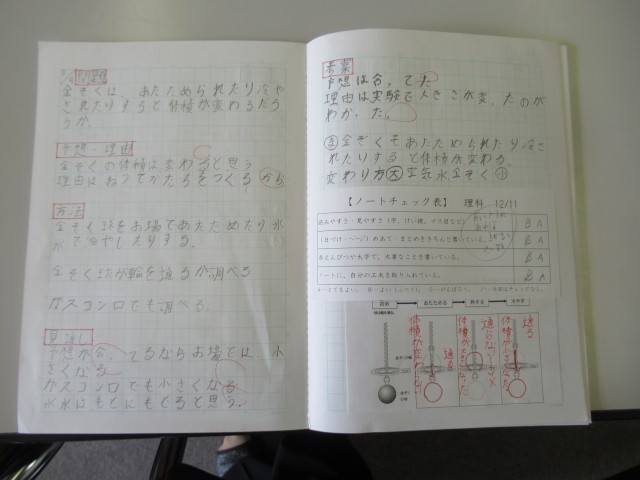 問題
金ぞくは、あたためられたり冷や
されたりすると体積が変わるだろ
うか。
予想 理由
金ぞくの体積は変わると思う
理由は ねつでかたちをつくるから
方法
金ぞく球をお湯であたためたり水
水で冷やしたりする。
金ぞく球が輪を通るか調べる
ガスコンロでも調べる。
見通し
予想が合ってるならお湯では、小
さくなる
ガスコンロでも小さくなる
氷水にもどにもどると思う。
考察
予想は合ってた
理由は実験で大きさが変ったのが
わかった。
ま 金ぞくもあたためられたり冷さ
れたりすると体積が変わる。
変わり方 大 空気 水 金ぞく 小
【ノートチェック表】 理科 12/11
読みやすさ・見やすさ(字、けい線、マス目など)
B A
(日づけ・ページ)めあて・まとめをきちんと書いている。
B A
赤えんぴつや太字で、大事なことを書いている。
B A
ノートに、自分の工夫を取り入れている。
B A
あたためる
熱する
冷やす
通る
体積が変わった